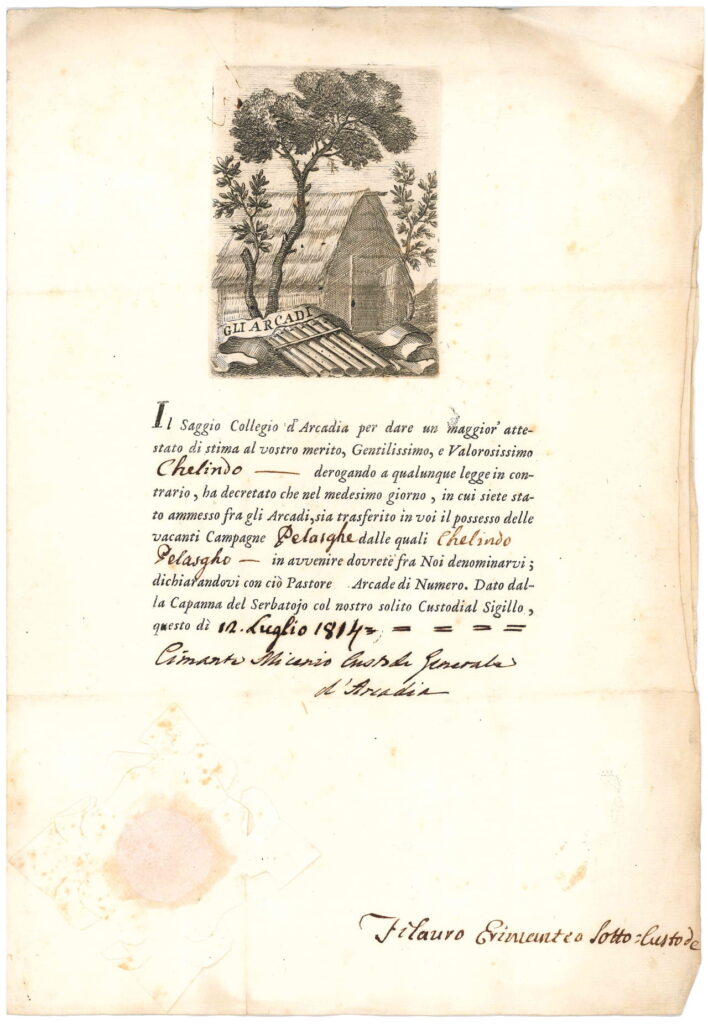 GLI ARCADI
Il Saggio Collegio d'Arcadia per dare un maggior atte-
stato di stima al vostro merito, Gentilissimo, e Valorosissimo
Chelindo — derogando a qualunque legge in con-
trario, ha decretato che nel medesimo giorno, in cui siete sta-
to ammesso fra gli Arcadi, sia trasferito in voi il possesso delle
vacanti Campagne Pelasghe dalle quali Chelindo
Pelasgho — in avvenire dovrete fra Noi denominarvi;
dichiarandovi con ciò Pastore Arcade di Numero. Dato dal-
la Capanna del Serbatojo col nostro solito Custodial Sigillo,
questo dì 12. Luglio 1814 = = = = =
Cimante Micenio Custode Generale
d'Arcadia
Filauro Erimanteo Sotto=Custode